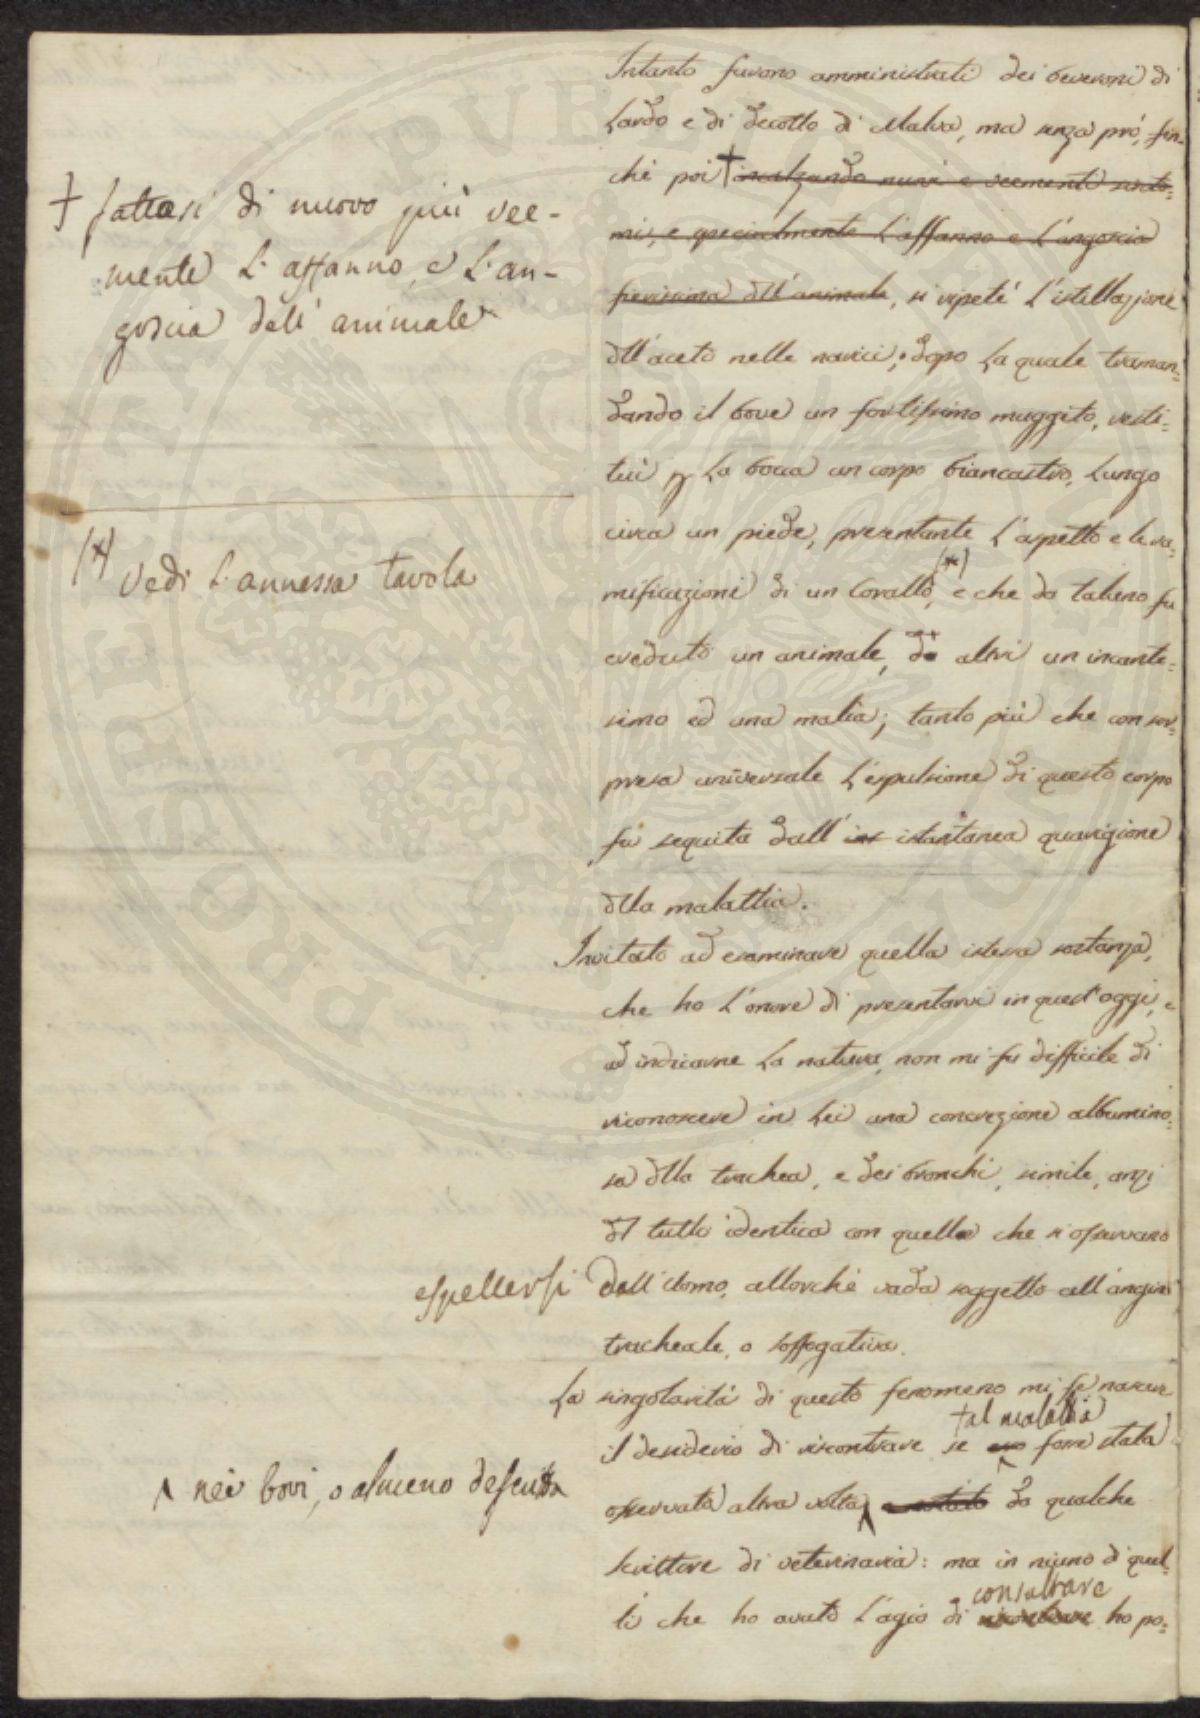 Intanto furono amministrati dei beveroni di
Lardo e di decotto di Malva, ma senza prò, fin-
chè poi † incalzando nuovi e veementi sinto=
mi, e specialmente l'affanno e l'angoscia
fierissima dell'animale, si ripeté l'istillazione
dll'aceto nelle narici; dopo la quale traman=
dando il bove un fortissimo muggito, resti=
tuì p la bocca un corpo biancastro, lungo
circa un piede, presentante l'aspetto e le ra=
mificazioni di un Corallo (*), e che da taluno fu
creduto un animale, da altri un incante=
simo ed una malìa; tanto più che con sor=
presa universale l'espulsione di questo corpo
fù seguita dall' ins istantanea guarigione
dlla malattia.
Invitato ad esaminare quella istessa sostanza,
che ho l'onore di presentarvi in quest'oggi, e
ad indicarne la natura, non mi fu difficile di
riconoscere in lei una concrezione albumino=
sa dlla trachea, e dei bronchi, simile, anzi
dl tutto identica con quelle che si osservano
espellersi dall'Uomo, allorchè vada soggetto all'angina
tracheale, o soffogativa.
La singolarità di questo fenomeno mi fe nascere
tal malattia
il desiderio di riscontrare se fosse stata
osservata altra volta ^ da qualche
scrittore di veterinaria: ma in niuno di quel=
consultare
li che ho avuto l'agio di riscontrare ho po=
† fattasi di nuovo più vee-
mente l'affanno, e l'an-
goscia dell'animale
(*) Vedi l'annessa tavola
^ nei bovi, o almeno descritta